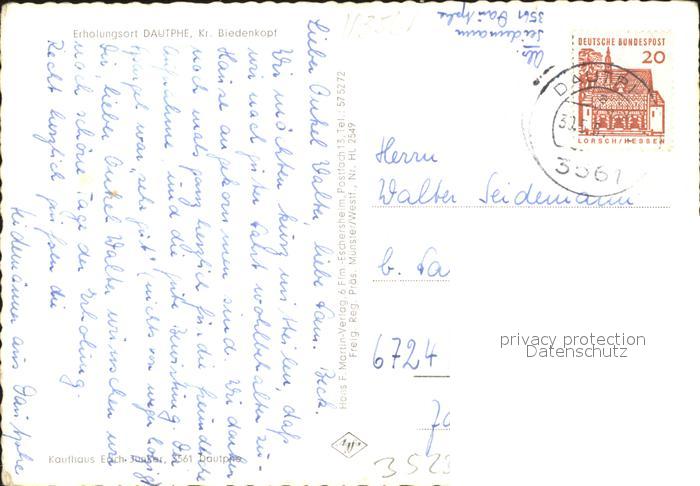 Erholungsort DAUTPHE, Kr. Biedenkopf
Lieber Onkel Walter, liebe Fam. Beck.
Wir möchten kurz mitteilen, daß
wir nach guter Fahrt wohlbehalten zu-
Hause angekommen sind. Wir danken
noch mals ganz herzlich für die freundliche
Aufnahme und die gute Bewirtung. Der
Spargel war „sehr gut“ (nichts von wegen holzig)
Dir, lieber Onkel Walter wünschen wir
noch schöne Tage der Erholung.
Recht herzlich grüßen die
Seidemänner aus Dautphe
Kaufhaus Erich Junker, 3561 Dautphe
Hans F. Martin-Verlag 6 Ffm.-Eschersheim, Postfach 13, Tel.: 52 52 72
Freig. Reg. Präs. Münster/Westf., Nr. HL 2549
Seidemann
3561 Dautphe
DEUTSCHE BUNDESPOST
20
LORSCH/HESSEN
DAUTPHE
3561
Herrn
Walter Seidemann
b. Fa
6724
privacy protection
Datenschutz